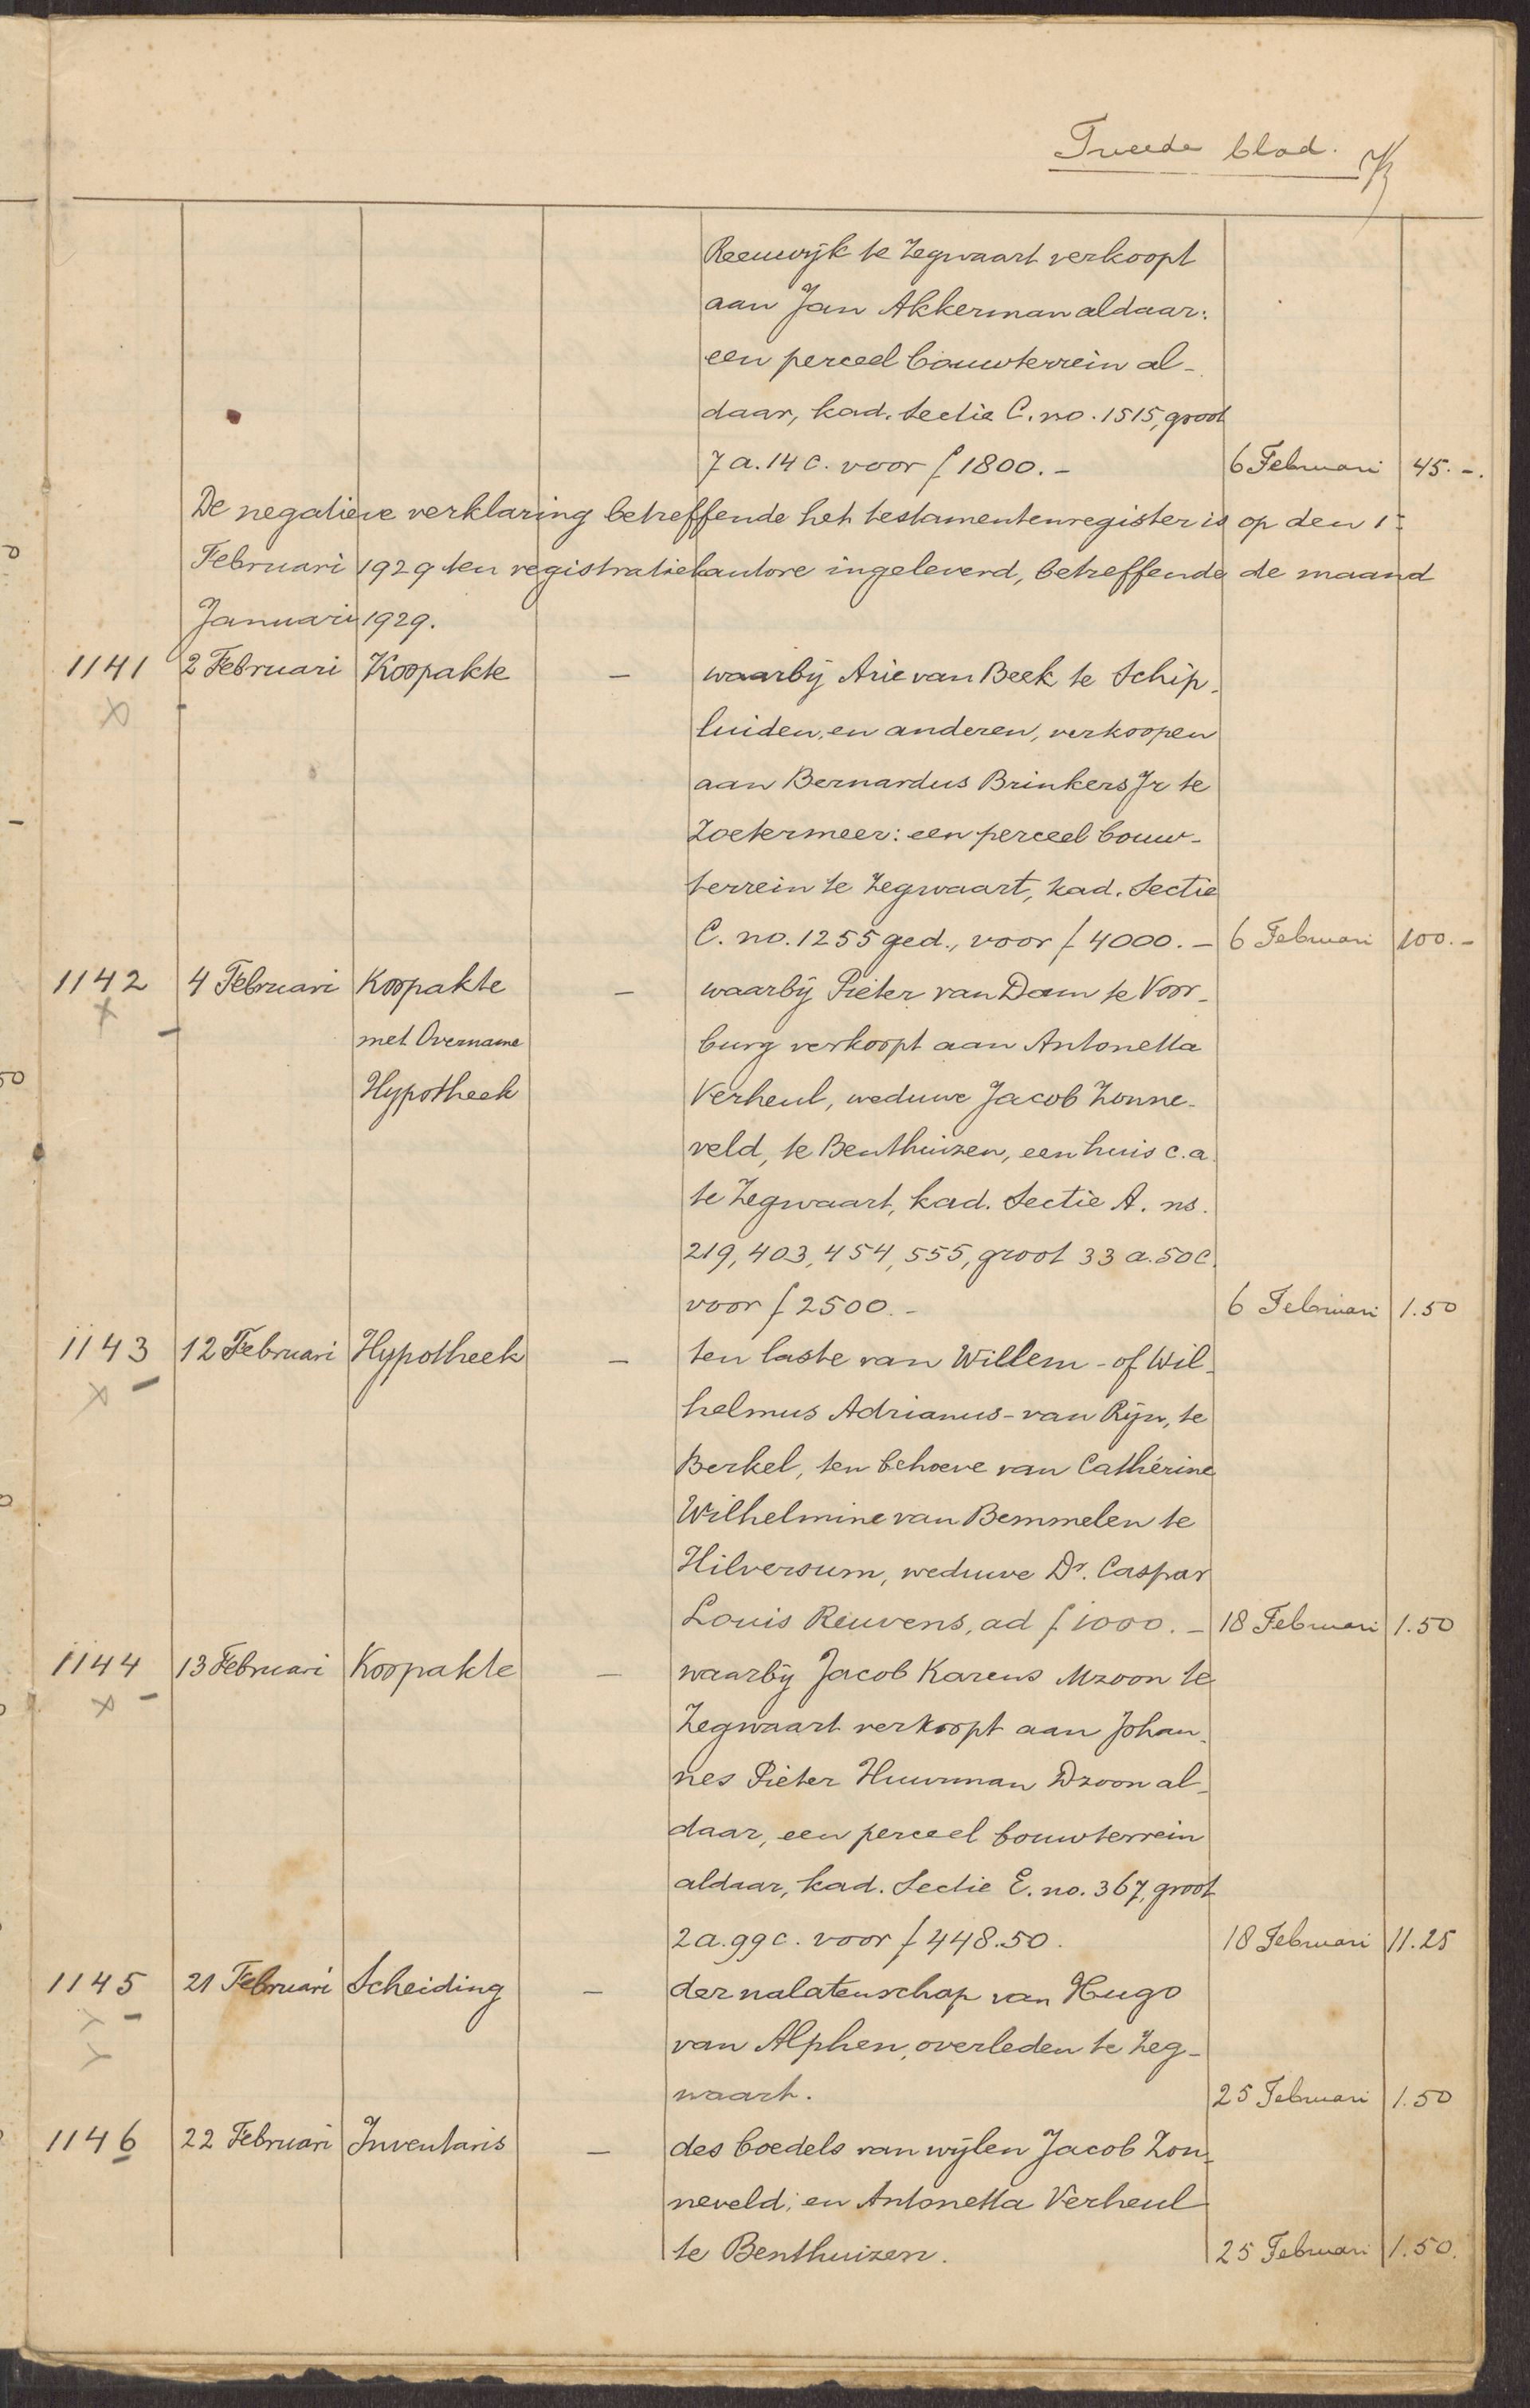 Tweede blad.
Reeuwijk te Zegwaart verkoopt
aan Jan Akkerman aldaar:
een perceel bouwterrein al-
daar, kad. Sectie C. no. 1515, groot
7 a. 14 c. voor f 1800.- 6 Februari 45.-.
De negatieve verklaring betreffende het testamentenregister is op den 1e
Februari 1929 ten registratiekantore ingeleverd, betreffende de maand
Januari 1929.
1141 2 Februari Koopakte - waarbij Arie van Beek te Schip-
luiden, en anderen, verkoopen
aan Bernardus Brinkers Jr te
Zoetermeer: een perceel bouw-
terrein te Zegwaart, kad. Sectie
C. no. 1255 ged., voor f 4000.- 6 Februari 100.-
1142 4 Februari Koopakte - waarbij Pieter van Dam te Voor-
met Overname burg verkoopt aan Antonetta
Hypotheek Verheul, weduwe Jacob Zonne-
veld, te Benthuizen, een huis c.a.
te Zegwaart, kad. Sectie A. ns.
219, 403, 454, 555, groot 33 a. 50 c.
voor f 2500.- 6 Februari 1.50
1143 12 Februari Hypotheek - ten laste van Willem - of Wil-
helmus Adrianus - van Rijn, te
Berkel, ten behoeve van Cathérine
Wilhelmine van Bemmelen te
Hilversum, weduwe Dr. Caspar
Louis Reuvens, ad f 1000.- 18 Februari 1.50
1144 13 Februari Koopakte - waarbij Jacob Karens Mzoon te
Zegwaart verkoopt aan Johan-
nes Pieter Huurman Dzoon al-
daar, een perceel bouwterrein
aldaar, kad. Sectie E. no. 367, groot
2 a. 99 c. voor f 448.50. 18 Februari 11.25
1145 21 Februari Scheiding - der nalatenschap van Hugo
van Alphen, overleden te Zeg-
waart. 25 Februari 1.50
1146 22 Februari Inventaris - des boedels van wijlen Jacob Zon-
neveld, en Antonetta Verheul
te Benthuizen. 25 Februari 1.50.